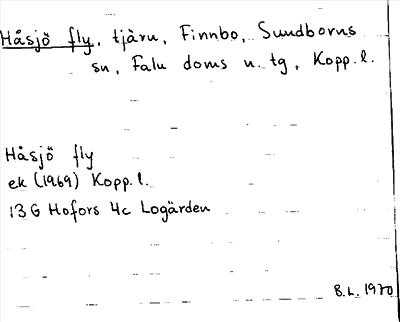 Håsjö fly, tjärn, Finnbo, Sundborns
sn, Falu doms n. tg, Kopp. l.
Håsjö fly
ek (1969) Kopp. l.
13 G Hofors 4c Logärden
B.L. 1970